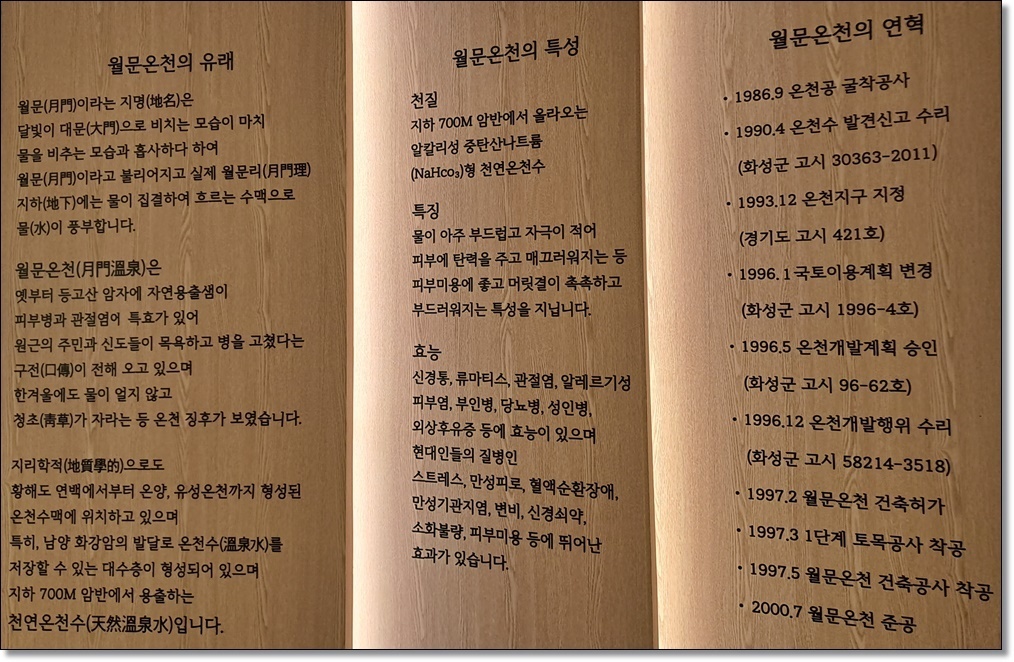 월문온천의 유래
월문(月門)이라는 지명(地名)은
달빛이 대문(大門)으로 비치는 모습이 마치
물을 비추는 모습과 흡사하다 하여
월문(月門)이라고 불리어지고 실제 월문리(月門理)
지하(地下)에는 물이 집결하여 흐르는 수맥으로
물(水)이 풍부합니다.
월문온천(月門溫泉)은
옛부터 등고산 암자에 자연용출샘이
피부병과 관절염에 특효가 있어
원근의 주민과 신도들이 목욕하고 병을 고쳤다는
구전(口傳)이 전해 오고 있으며
한겨울에도 물이 얼지 않고
청초(靑草)가 자라는 등 온천 징후가 보였습니다.
지리학적(地質學的)으로도
황해도 연백에서부터 온양, 유성온천까지 형성된
온천수맥에 위치하고 있으며
특히, 남양 화강암의 발달로 온천수(溫泉水)를
저장할 수 있는 대수층이 형성되어 있으며
지하 700M 암반에서 용출하는
천연온천수(天然溫泉水)입니다.
월문온천의 특성
천질
지하 700M 암반에서 올라오는
알칼리성 중탄산나트륨
(NaHco₃)형 천연온천수
특징
물이 아주 부드럽고 자극이 적어
피부에 탄력을 주고 매끄러워지는 등
피부미용에 좋고 머릿결이 촉촉하고
부드러워지는 특성을 지닙니다.
효능
신경통, 류마티스, 관절염, 알레르기성
피부염, 부인병, 당뇨병, 성인병,
외상후유증 등에 효능이 있으며
현대인들의 질병인
스트레스, 만성피로, 혈액순환장애,
만성기관지염, 변비, 신경쇠약,
소화불량, 피부미용 등에 뛰어난
효과가 있습니다.
월문온천의 연혁
· 1986.9 온천공 굴착공사
· 1990.4 온천수 발견신고 수리
(화성군 고시 30363-2011)
· 1993.12 온천지구 지정
(경기도 고시 421호)
· 1996.1 국토이용계획 변경
(화성군 고시 1996-4호)
· 1996.5 온천개발계획 승인
(화성군 고시 96-62호)
· 1996.12 온천개발행위 수리
(화성군 고시 58214-3518)
· 1997.2 월문온천 건축허가
· 1997.3 1단계 토목공사 착공
· 1997.5 월문온천 건축공사 착공
· 2000.7 월문온천 준공